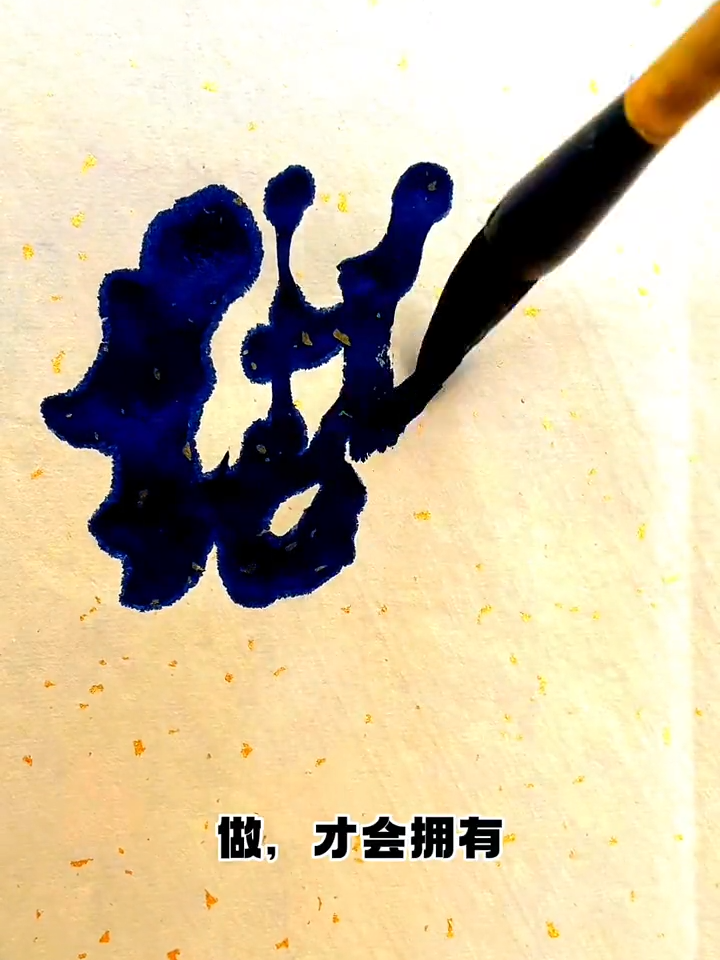 做，才会拥有